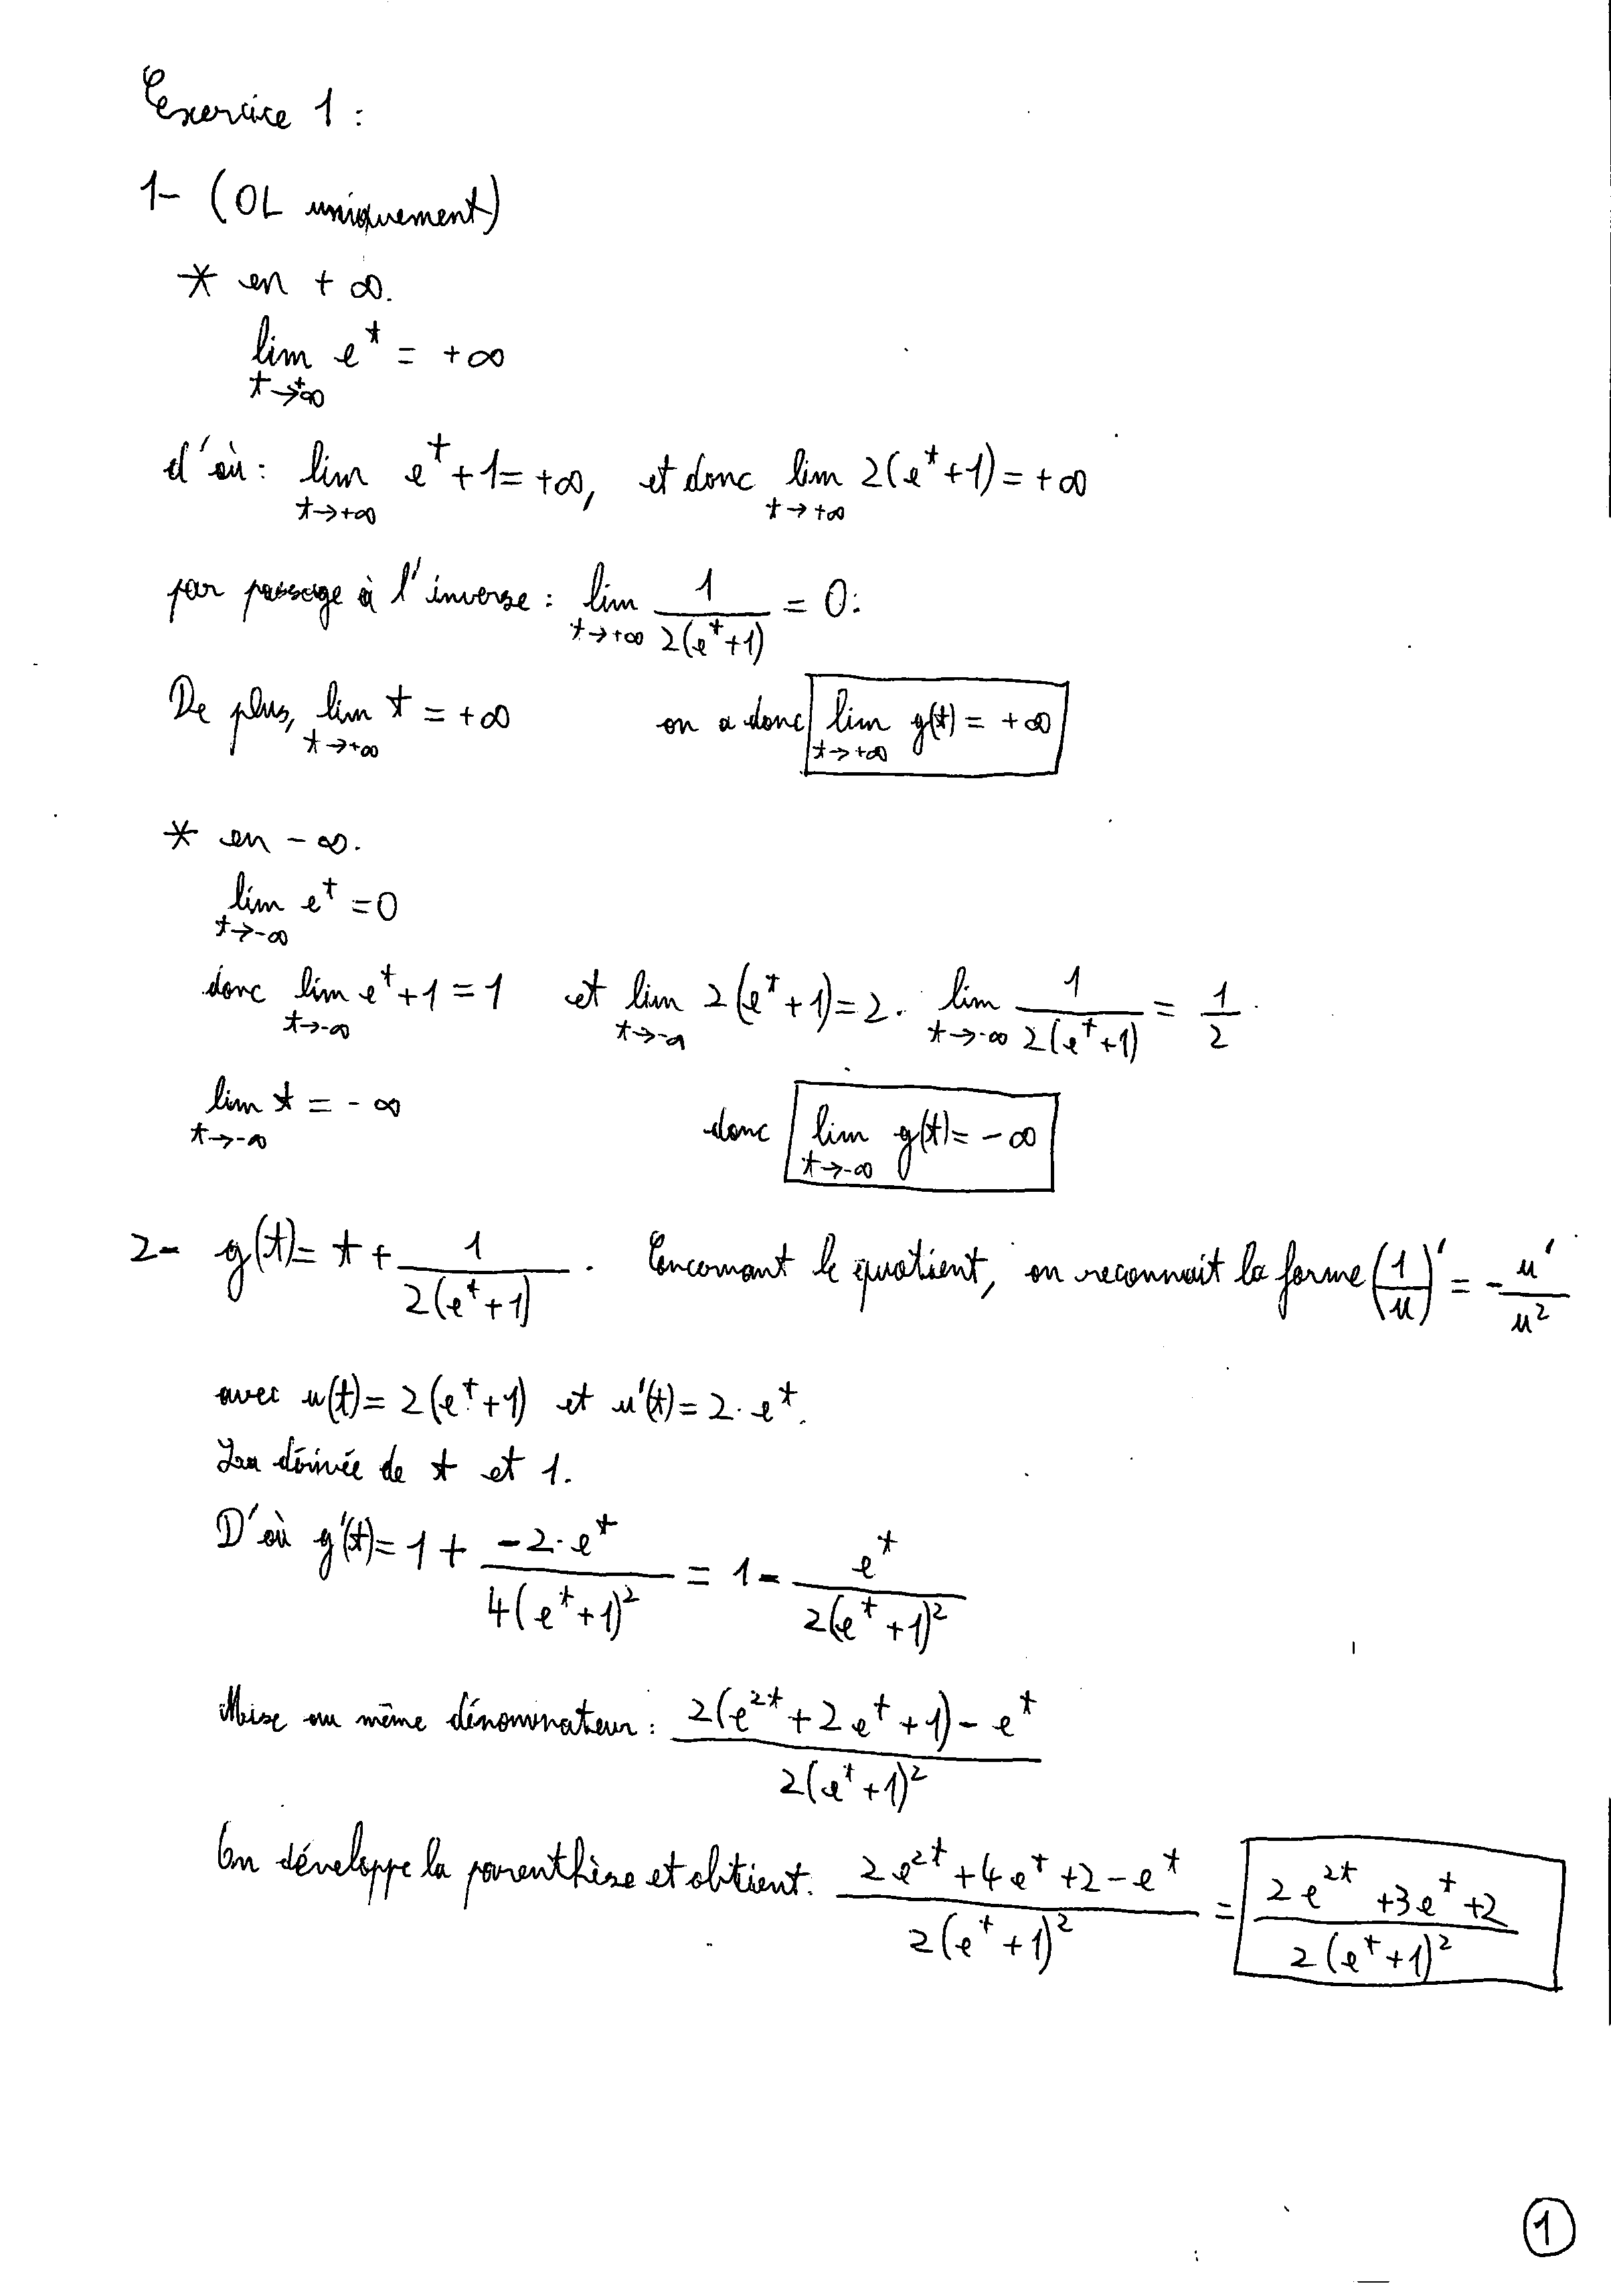 Exercice 1 :
1- (OL uniquement)
* en + ∞.
lim e^t = +∞
t→+∞
d'où : lim e^t + 1 = +∞, et donc lim 2(e^t + 1) = +∞
t→+∞ t→+∞
par passage à l'inverse : lim 1/(2(e^t + 1)) = 0.
t→+∞
De plus, lim t = +∞ on a donc lim g(t) = +∞
t→+∞ t→+∞
* en - ∞.
lim e^t = 0
t→-∞
donc lim e^t + 1 = 1 et lim 2(e^t + 1) = 2. lim 1/(2(e^t + 1)) = 1/2.
t→-∞ t→-∞ t→-∞
lim t = - ∞ donc lim g(t) = - ∞
t→-∞ t→-∞
2- g(t) = t + 1/(2(e^t + 1)). Concernant le quotient, on reconnait la forme (1/u)' = - u'/u²
avec u(t) = 2(e^t + 1) et u'(t) = 2·e^t.
La dérivée de t et 1.
D'où g'(t) = 1 + (-2·e^t)/(4(e^t + 1)²) = 1 - e^t/(2(e^t + 1)²)
Mise au même dénominateur : (2(e^2t + 2e^t + 1) - e^t)/(2(e^t + 1)²)
On développe la parenthèse et obtient. (2e^2t + 4e^t + 2 - e^t)/(2(e^t + 1)²) = (2e^2t + 3e^t + 2)/(2(e^t + 1)²)
1